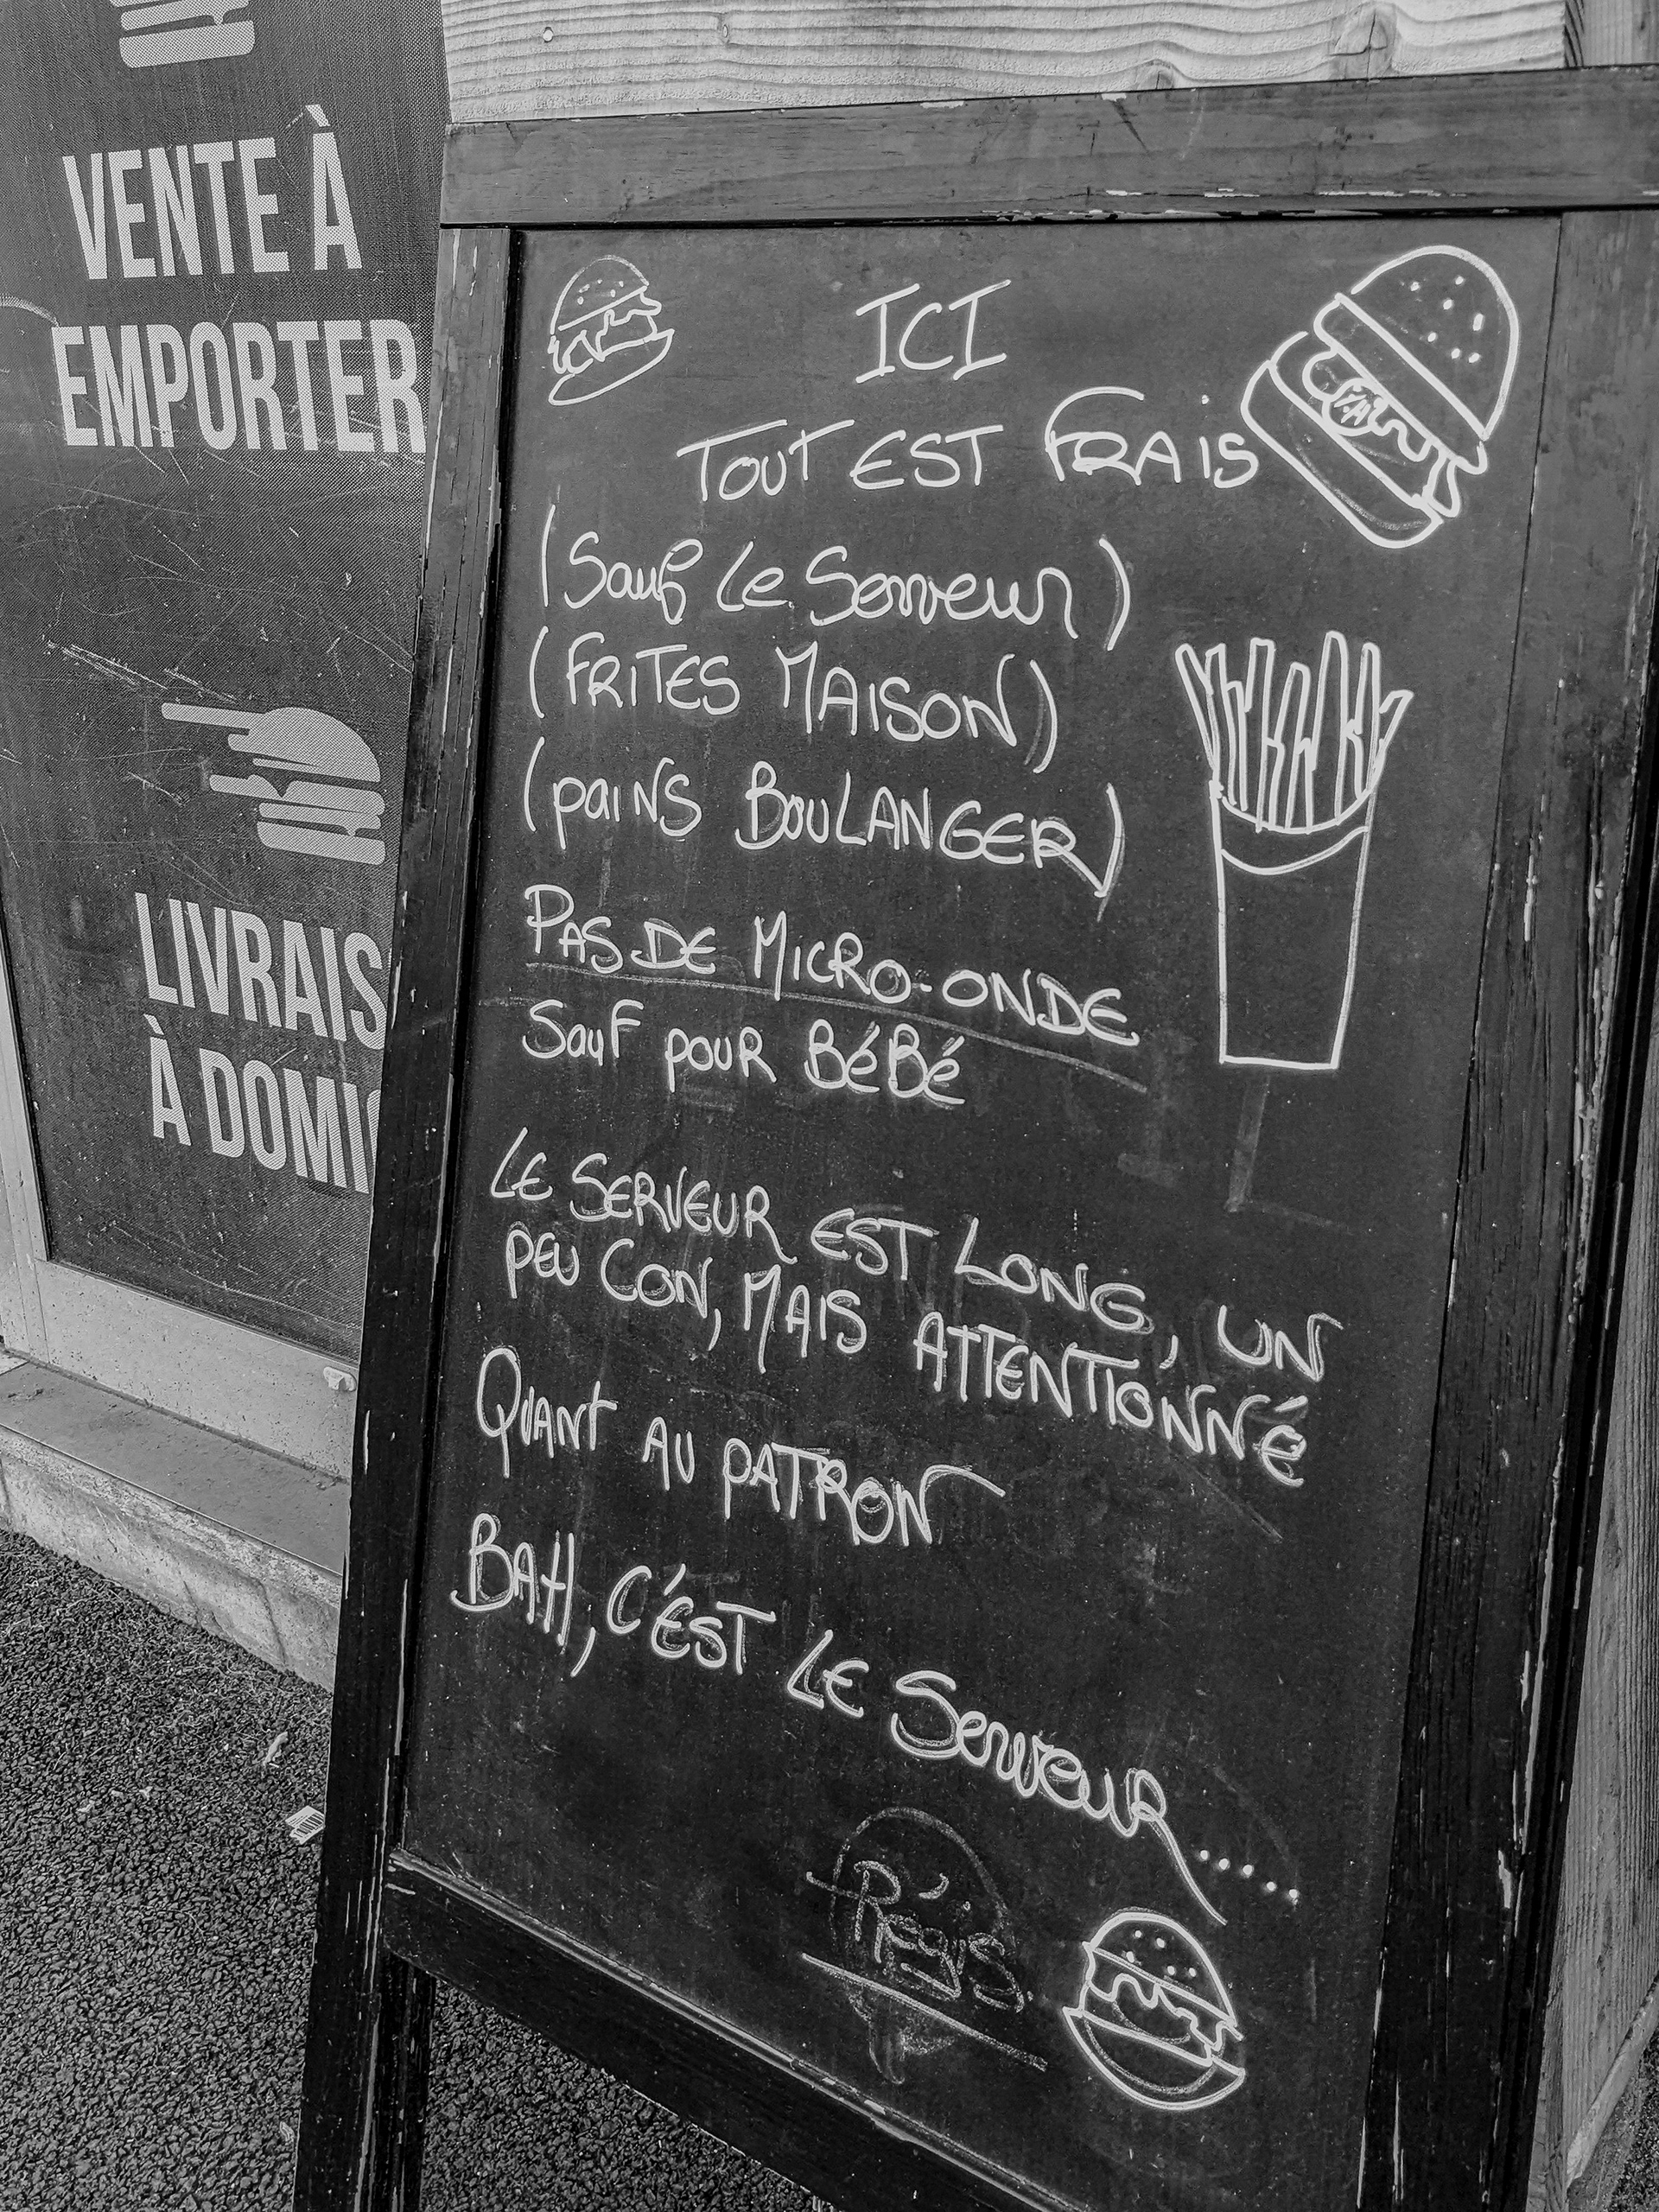 VENTE À
EMPORTER
LIVRAIS
À DOMIC
ICI
TOUT EST FRAIS
(Sauf Le Serveur)
(FRITES MAISON)
(pains BOULANGER)
PAS DE MICRO-ONDE
Sauf pour BéBé
LE SERVEUR EST LONG, UN
PEU CON, MAIS ATTENTIONNÉ
QUANT AU PATRON
BAH, C'EST LE SERVEUR.....
RÉGIS.